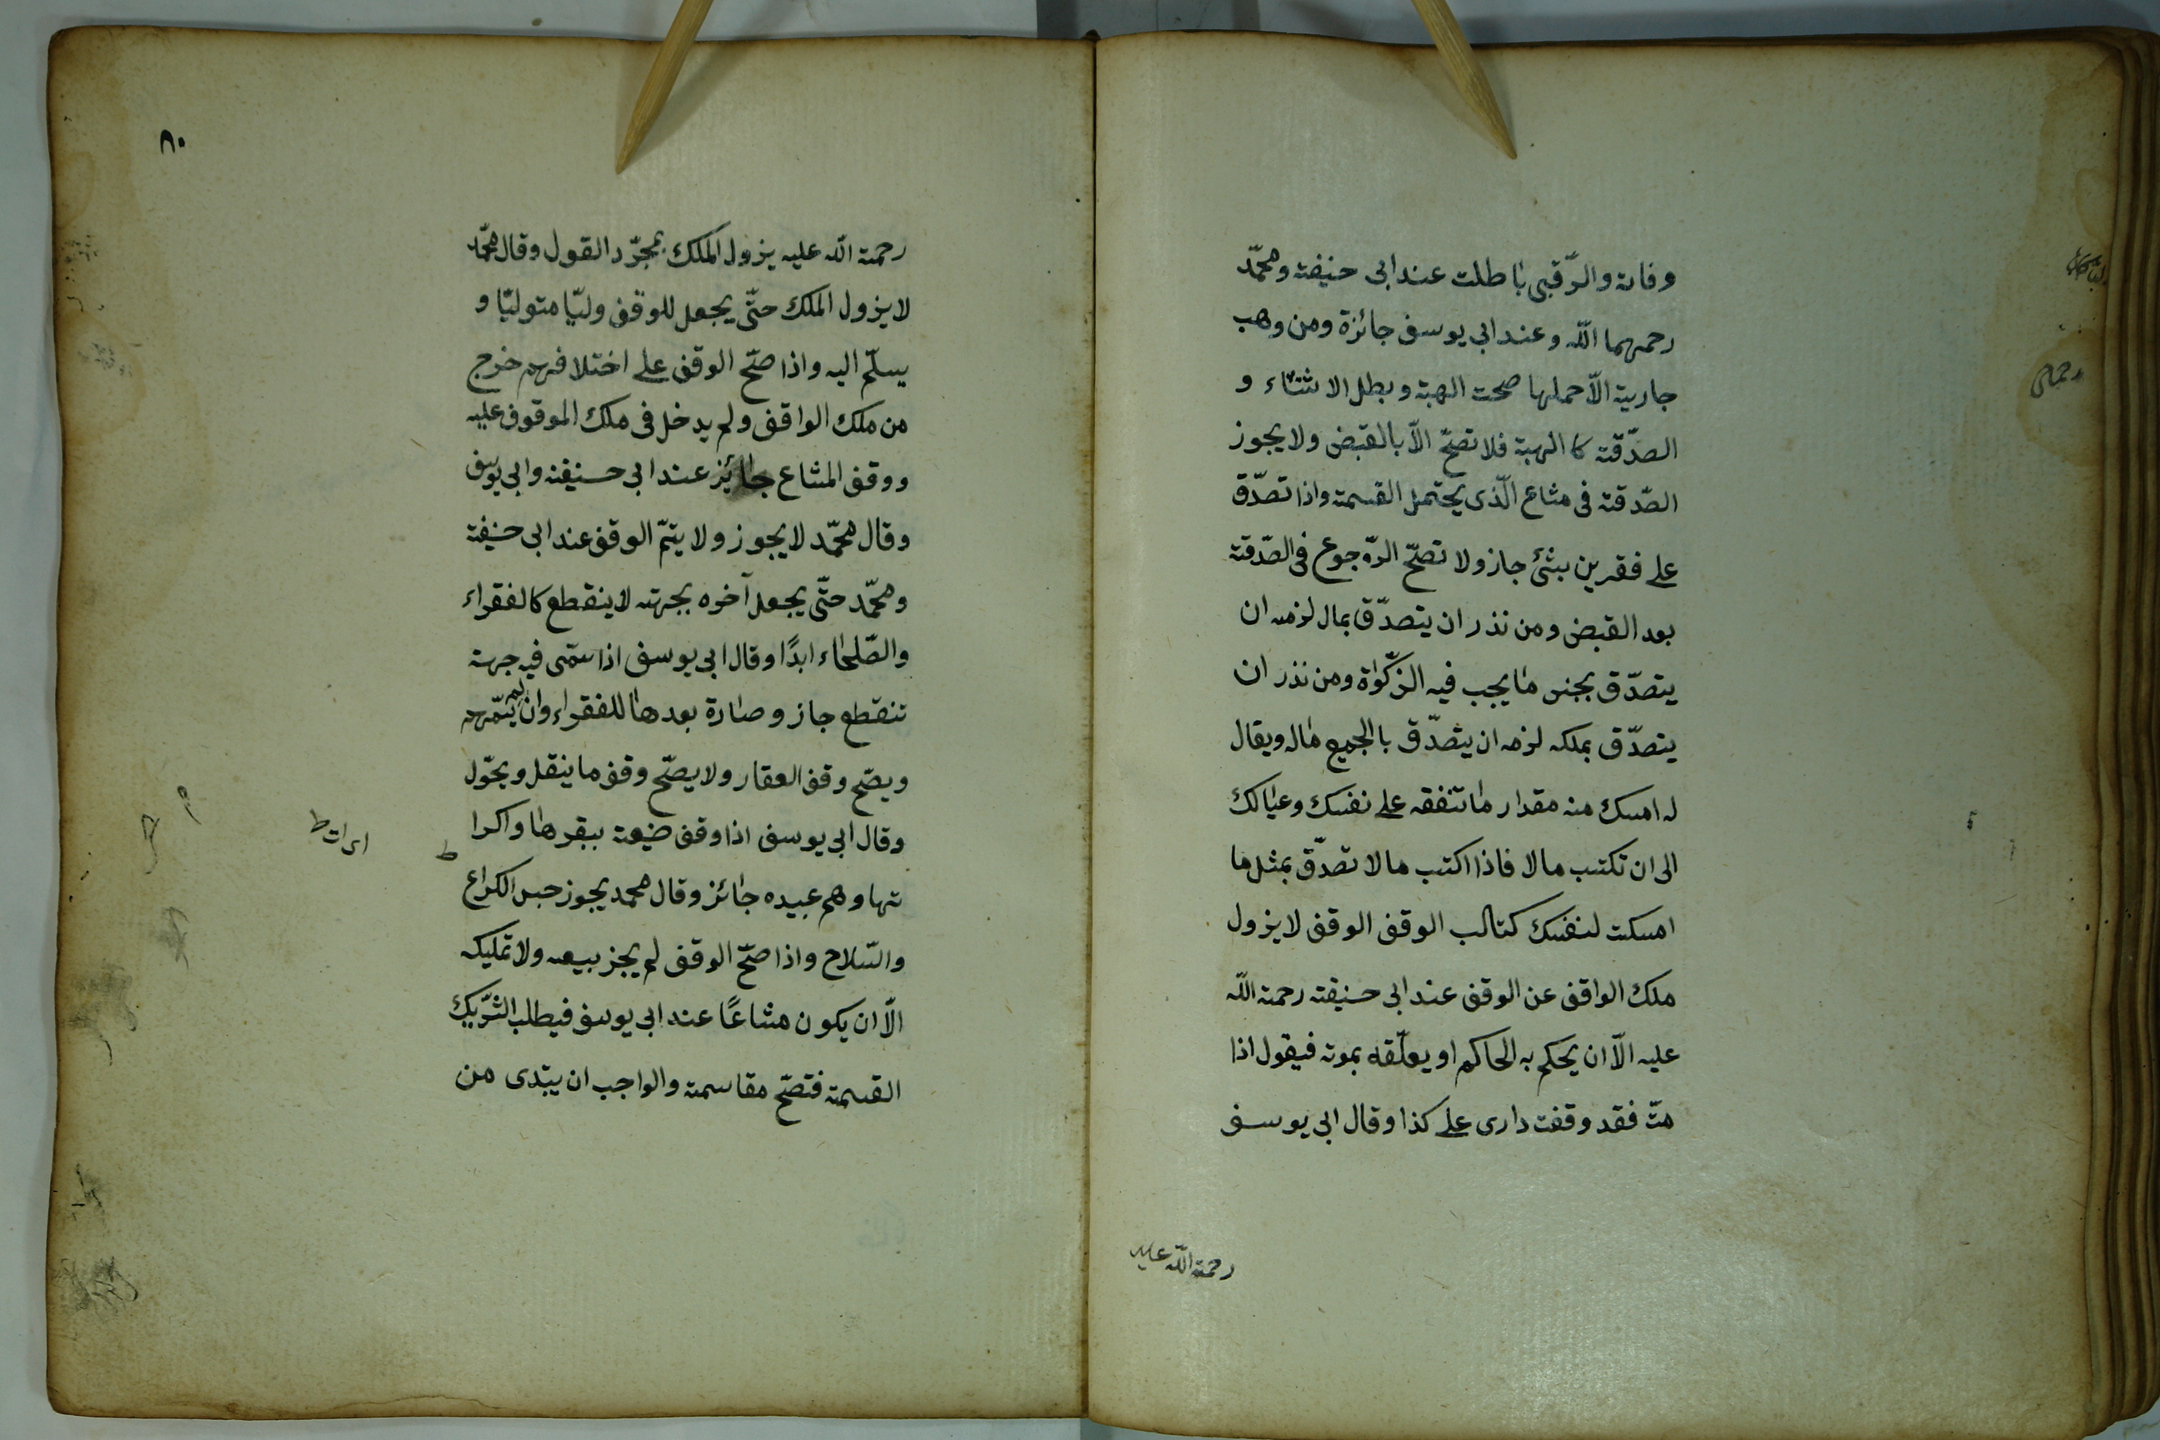 وفاته والرّقبى باطلت عند ابى حنيفة ومحمّد
رحمهما اللّه وعند ابى يوسف جائزة ومن وهب
جارية الّا حملها صحت الهبة وبطل الاشثناء و
الصدّقته كا الهبة فلا تصحّ الّا بالقبض ولا يجوز
الصّدقته فى مشاع الّذى يحتمل القسمة واذا تصدّق
على فقرين بشئ جاز ولا تصحّ الرّجوع فى الصّدقته
بعد القبض ومن نذر ان يتصدّق بمال لزمه ان
يتصدّق بجنس ما يجب فيه الزّكواة ومن نذر ان
يتصدّق بملكه لزمه ان يتصدّق بالجميع ماله ويقال
له امسك منه مقدار ما تنفقه على نفسك وعيالك
الى ان تكتسب مالا فاذا اكتسب مالا تصدّق بمثل ما
امسكت لنفسك كتالب الوقف الوقف لا يزول
ملك الواقف عن الوقف عند ابى حنيفته رحمة اللّه
عليه الّا ان يحكم به الحاكم او يعلّقه بموته فيقول اذا
متّ فقد وقفت دارى على كذا وقال ابى يوسف
رحمة اللّه عليه
٨٠
رحمة اللّه عليه يزول الملك بمجرّد القول وقال محمّد
لا يزول الملك حتّى يجعل للوقف وليّا متوليّا و
يسلّم اليه واذا صحّ الوقف على اختلافهم خرج
من ملك الواقف ولم يدخل فى ملك الموقوف عليه
ووقف المشاع جائز عند ابى حنيفة وابى يوسف
وقال محمّد لا يجوز ولا يتمّ الوقف عند ابى حنيفة
ومحمّد حتّى يجعل آخره بجهته لا ينقطع كالفقراء
والصّلحاء ابدًا وقال ابى يوسف اذا سمّى فيه جهة
تنقطع جاز وصارة بعدها للفقراء وان لم يسمّهم
ويصّح وقف العقار ولا يصّح وقف ما ينقل ويحوّل
وقال ابى يوسف اذا وقف ضيعة ببقرها واكرا
تها وهم عبيده جائز وقال محمد يجوز حبس الكراع
والسّلاح واذا صحّ الوقف لم يجز بيعه ولا تمليكه
الّا ان يكون مشاعًا عند ابى يوسف فيطلب الشّريك
القسمة فتصّح مقاسمة والواجب ان يبتدى من